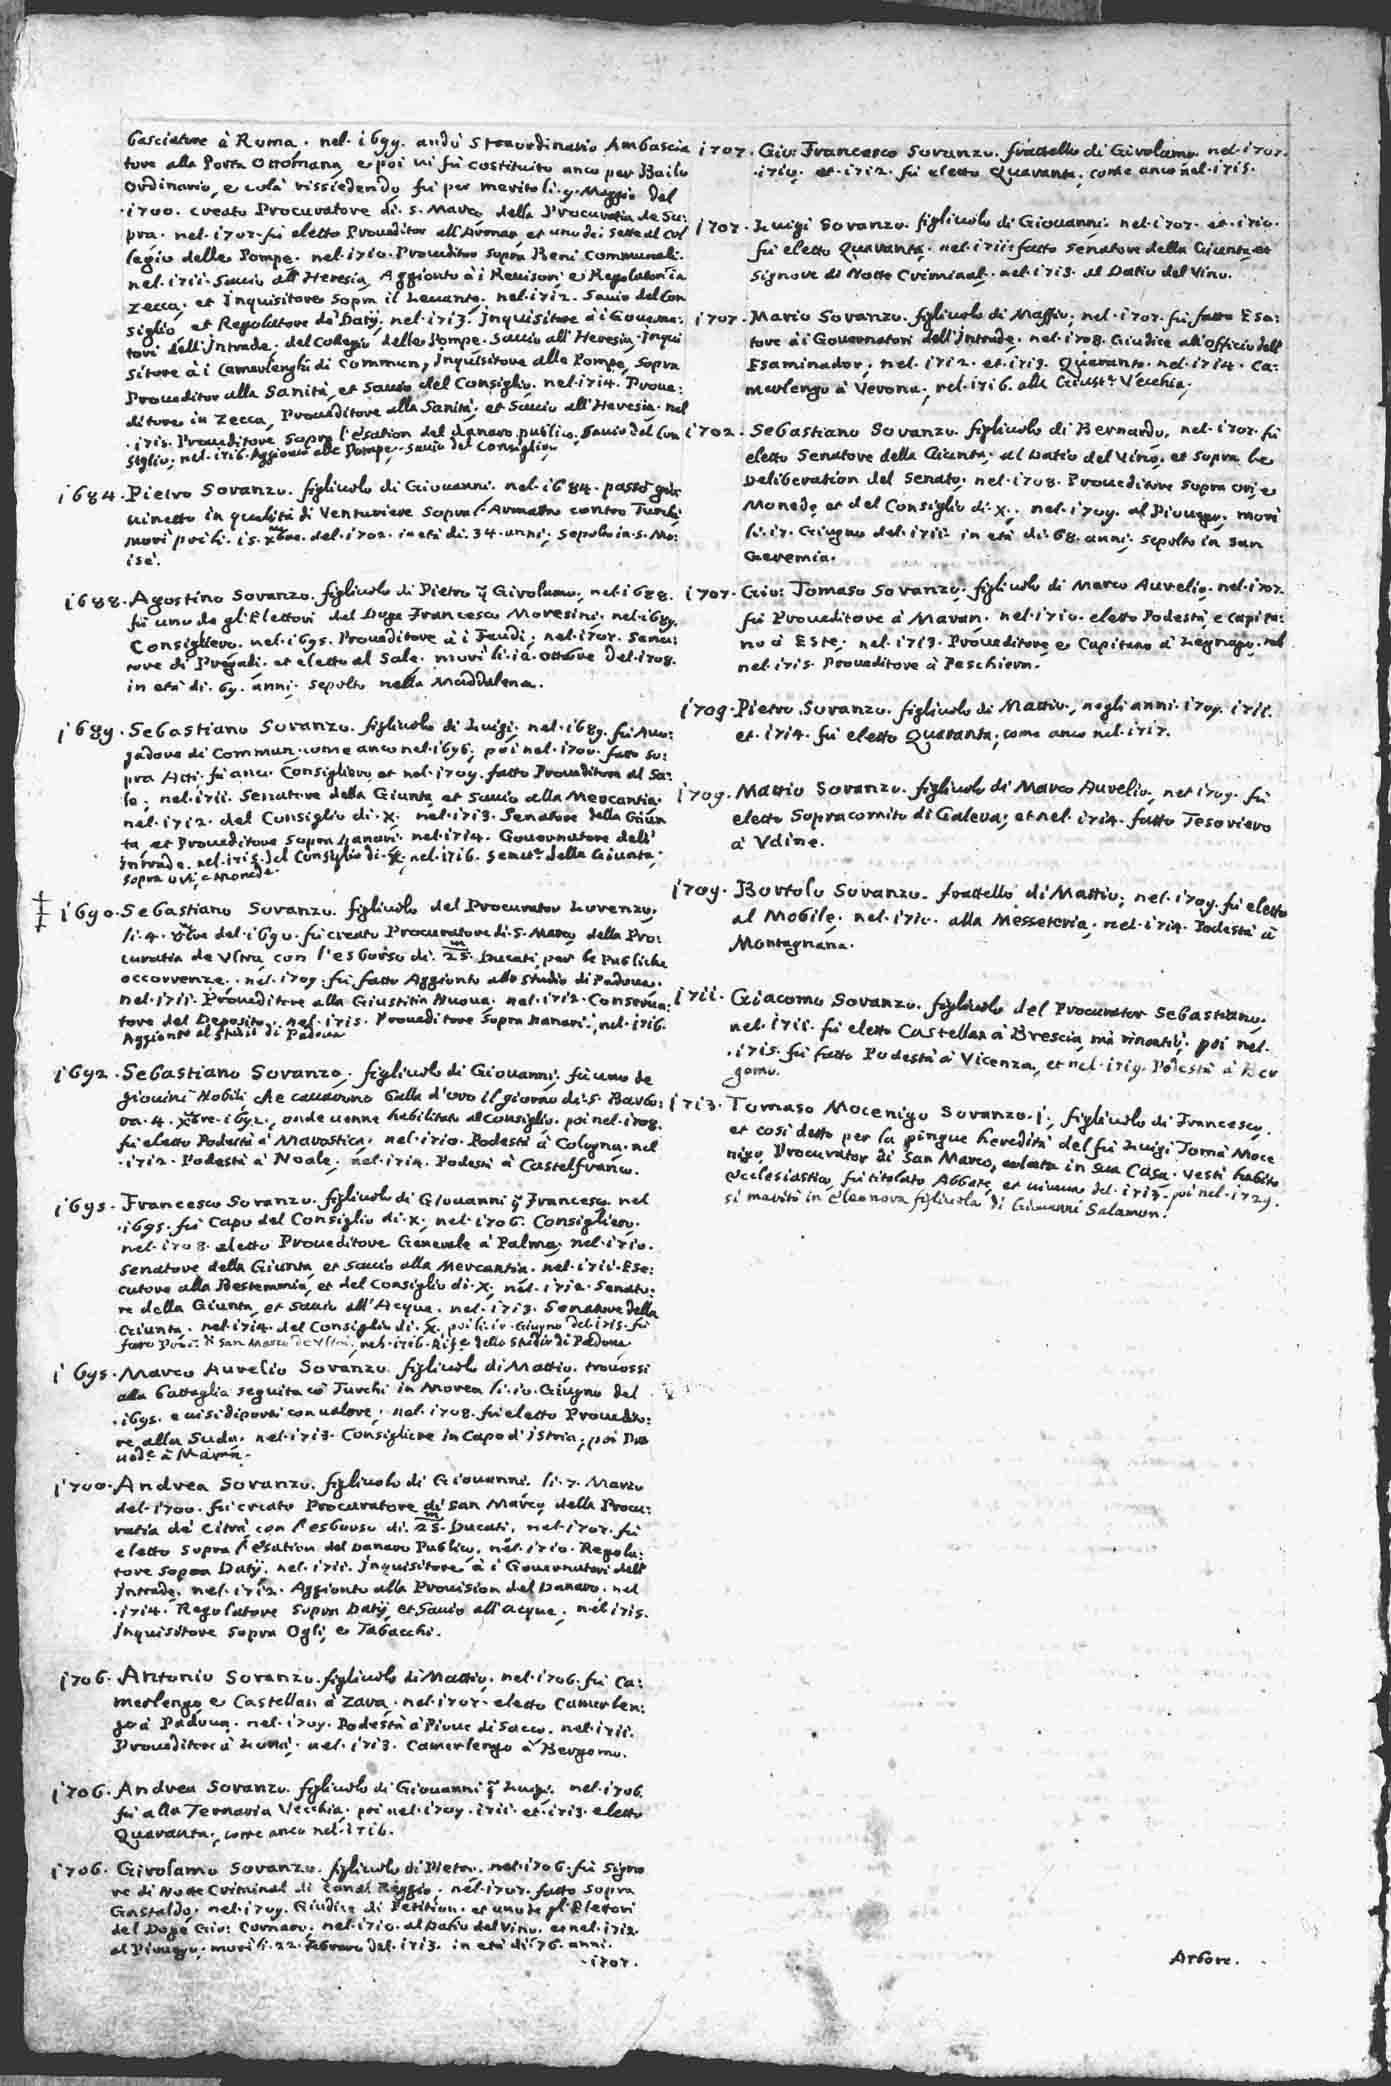 basciatore à Roma. nel. 1699. andò Straordinario Ambascia
tore alla Porta Ottomana, e poi vi fù costituito anco per Bailo
Ordinario, e colà rissiedendo fù per merito li. 9. Maggio del
.1700. creato Procuratore di. S. Marco della Procuratia de Su:
pra. nel. 1707. fù eletto Proueditor all'Armar et uno dei sette al Col
legio delle Pompe. nel. 1710. Proueditor sopra Beni Communali.
nel. 1711. Sauio all'Heresia, Aggionto à i Reuisori e Regolatori in
Zecca, et Inquisitore sopra il Leuante. nel. 1712. Sauio del Con
siglio, et Regolatore de Datij, nel. 1713. Inquisitore à i Gouerna:
tori dell'Intrade. del Collegio delle Pompe. Sauio all'Heresia, Inqui
sitore à i Camerlenghi di Commun, Inquisitore alle Pompe, sopra
Proueditor alla Sanità, et Sauio del Consiglio. nel. 1714. Proue:
ditore in Zecca, Proueditore alla Sanità, et Sauio all'Heresia. nel
.1715. Proueditore sopra l'esation del danaro publico, Sauio del Con
siglio, nel. 1716. Aggionto alle Pompe. Sauio del Consiglio.
1684. Pietro Soranzo. figliuolo di Giouanni. nel. 1684. passò gio:
uinetto in qualità di Venturiere sopra l'Armatta contro Turchi,
morì poi li. 15. xbre. del. 1702. in età di. 34. anni, sepolto in. S. Mo:
isè.
1688. Agostino Soranzo. figliuolo di Pietro q Girolamo, nel. 1688.
fù uno de gl'Elettori del Doge Francesco Moresini. nel. 1689.
Consigliero. nel. 1695. Proueditore à i Feudi, nel. 1707. Sena:
tore di Pregadi. et eletto al Sale. morì li. 12. Ottobre del. 1708.
in età di. 69. anni. sepolto nella Maddalena.
1689. Sebastiano Soranzo. figliuolo di Luigi. nel. 1689. fù Auo:
gadore di Commun, come anco nel. 1696, poi nel. 1700. fatto So:
pra Atti, fù anco Consigliero et nel. 1709. fatto Proueditore al Sa:
le, nel. 1711. Senatore della Giunta et Sauio alla Mercantia.
nel. 1712. del Consiglio di. X. nel. 1713. Senatore della Giun
ta, et Proueditore Sopra Danari. nel. 1714. Gouernatore dell'
Intrade. nel. 1715. del Consiglio di. X. nel. 1716. Senat.e della Giunta,
sopra ori, e Monede.
1690. Sebastiano Soranzo. figliuolo del Procurator Lorenzo,
li. 4. del. 1690. fù creato Procuratore di. S. Marco della Pro:
curatia de Vltra, con l'esborso di. 25. Ducati, per le Publiche
occorrenze. nel. 1707. fù fatto Aggionto allo Studio di Padoua.
nel. 1711. Proueditore alla Giustitia Nuoua. nel. 1712. Conserua:
tore del Deposito, nel. 1715. Proueditore sopra Danari, nel. 1716.
Aggionto al Studio di Padoua
1692. Sebastiano Soranzo, figliuolo di Giouanni, fù uno de
giouini Nobili che cauorono balla d'oro il giorno di. S. Barba:
ra. 4. xbre. 1692, onde uenne habilitato al Consiglio. poi nel. 1708.
fù eletto Podestà à Marostica. nel. 1710. Podestà à Cologna. nel
.1712. Podestà à Noale. nel. 1714. Podestà à Castelfranco.
1695. Francesco Soranzo. figliuolo di Giouanni q Francesco. nel
.1695. fù Capo del Consiglio di. X. nel. 1706. Consigliero.
nel. 1708. eletto Proueditore Generale à Palma, nel. 1710.
Senatore della Giunta et Sauio alla Mercantia. nel. 1711. Ese:
cutore alla Bestemmia, et del Consiglio di. X. nel. 1712. Senato:
re della Giunta, et Sauio all'Acque. nel. 1713. Senatore della
Giunta. nel. 1714. del Consiglio di. X. poi li. 10. Giugno del. 1715. fù
fatto San Marco de Vltra, nel. 1716. dello Studio di Padoua
1695. Marco Aurelio Soranzo. figliuolo di Mattio. trouossi
alla battaglia seguita co Turchi in Morea li. 10. Giugno del
.1695. e ui si diportò con ualore. nel. 1708. fù eletto Proudito:
re alla Suda. nel. 1713. Consigliere in Capo d'Istria, poi Pro
ued.e à Maran.
1700. Andrea Soranzo. figliuolo di Giouanni. li. 7. Marzo
del. 1700. fù creato Procuratore di San Marco della Procu:
ratia de Citra con l'esborso di. 25. Ducati. nel. 1707. fù
eletto sopra l'esation del Danaro Publico. nel. 1710. Regola:
tore sopra Datij. nel. 1711. Inquisitore à i Gouernatori dell'
Intrade. nel. 1712. Aggionto alla Prouision del Danaro. nel
.1714. Regolatore sopra Datij, et Sauio all'acque, nel. 1715.
Inquisitore sopra Ogli, e Tabacchi.
1706. Antonio Soranzo. figliuolo di Mattio. nel. 1706. fù Ca:
merlengo e Castellan à Zara. nel. 1707. eletto Camerlen:
go à Padoua. nel. 1709. Podestà à Pioue di Sacco. nel. 1711.
Proueditore à Lonà. nel. 1713. Camerlengo à Bergomo.
1706. Andrea Soranzo. figliuolo di Giouanni q Luigi. nel. 1706.
fù alla Ternaria Vecchia. poi nel. 1709. 1711. et. 1713. eletto
Quaranta, come anco nel. 1716.
1706. Girolamo Soranzo. figliuolo di Pietro. nel. 1706. fù Signo
re di Notte Criminal di nel. 1707. fatto sopra
Gastaldo, nel. 1709. Giudice di Petition, et uno de gl'Elettori
del Doge Gio: Cornaro. nel. 1710. al Datio del Vino. et nel. 1712.
al Piouego. morì li. 22. Febraro del. 1713. in età di. 76. anni.
.1707.
1707. Gio: Francesco Soranzo. frattello di Girolamo. nel. 1707.
.1710. et. 1712. fù eletto Quaranta, come anco nel. 1715.
1707. Luigi Soranzo. figliuolo di Giouanni. nel. 1707. et. 1710.
fù eletto Quaranta. nel. 1711. fatto Senatore della Giunta et
Signore di Notte Criminal. nel. 1713. al Datio del Vino.
1707. Mario Soranzo. figliuolo di Maffio, nel. 1707. fù fatto Esa:
tore à i Gouernatori dell'Intrade. nel. 1708. Giudice all'Officio dell'
Esaminador, nel. 1712. et. 1713. Quaranta. nel. 1714. Ca:
merlengo à Verona, nel. 1716. alla Giust.a Vecchia.
1702. Sebastiano Soranzo. figliuolo di Bernardo. nel. 1707. fù
eletto Senatore della Giunta, al Datio del Vino, et sopra le
Deliberation del Senato. nel. 1708. Proueditore sopra ori, e
Monede, et del Consiglio di. X. nel. 1709. al Piouego, morì
li. 17. Giugno del. 1711. in età di. 68. anni, sepolto in San
Geremia.
1707. Gio: Tomaso Soranzo, figliuolo di Marco Aurelio. nel. 1707.
fù Proueditore à Maran. nel. 1710. eletto Podestà e Capita:
no à Este, nel. 1713. Proueditore, e Capitano à Legnago, nel
nel. 1715. Proueditore à Peschiera.
1709. Pietro Soranzo. figliuolo di Mattio, negli anni. 1709. 1711.
et. 1714. fù eletto Quaranta, come anco nel. 1717.
1709. Mattio Soranzo. figliuolo di Marco Aurelio, nel. 1709. fù
eletto Sopracomito di Galera, et nel. 1714. fatto Tesoriero
à Vdine.
1709. Bortolo Soranzo. frattello di Mattio, nel. 1709. fù eletto
al Mobile. nel. 1710. alla Messeteria, nel. 1714. Podestà à
Montagnana.
1711. Giacomo Soranzo. figliuolo del Procurator Sebastiano,
nel. 1711. fù eletto Castellan à Brescia, mà rinontiò, poi nel.
.1715. fù fatto Podestà à Vicenza, et nel. 1719. Podestà à Ber
gomo.
1713. Tomaso Mocenigo Soranzo. I.. figliuolo di Francesco,
et così detto per la pingue heredità del fù Luigi Tomà Moce
nigo, Procurator di San Marco, colata in sua Casa. vestì habito
Ecclesiastico, fù titolato Abbate, et uiueua del. 1713. poi nel. 1729.
si maritò in Eleonora figliuola di Giouanni Salamon.
Arbore.